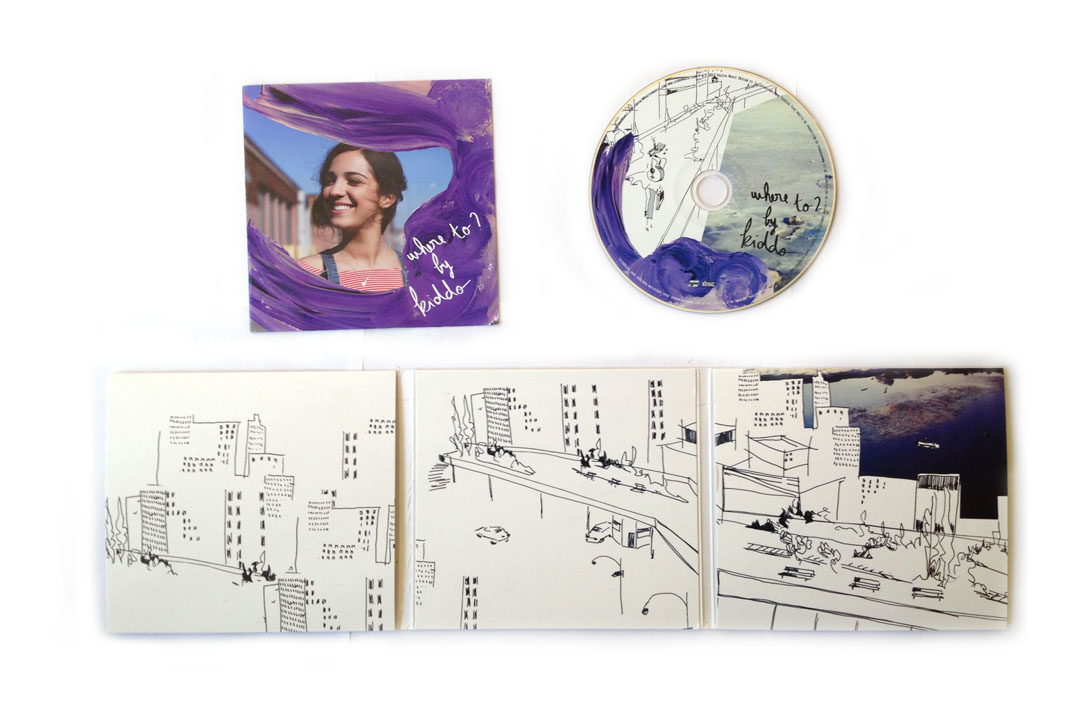 where to?
by
kiddo
where to?
by
kiddo
disc